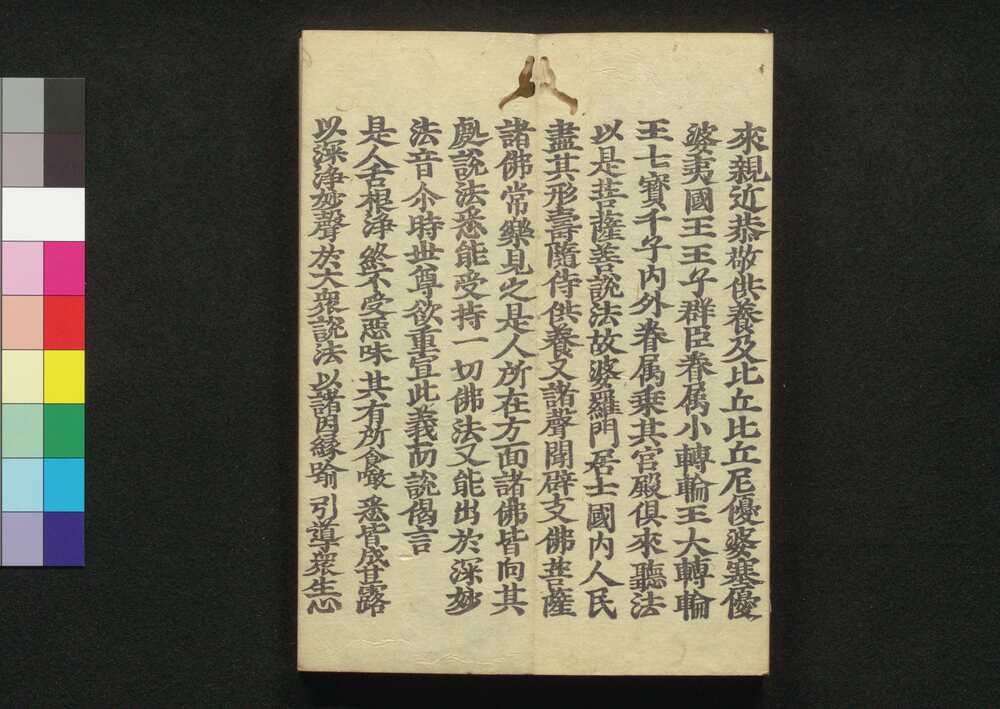 來親近恭敬供養及比丘比丘尼優婆塞優
婆夷國王王子群臣眷属小轉輪王大轉輪
王七寳千子内外眷属乗其宫殿俱來聽法
以是菩薩善說法故婆羅門居士國内人民
盡其形壽隨侍供養又諸聲聞辟支佛菩薩
諸佛常樂見之是人所在方面諸佛皆向其
處說法悉能受持一切佛法又能出於深妙
法音尒時世尊欲重宣此義而說偈言
是人舌根浄 終不受惡味 其有所食噉 悉皆成甘露
以深浄妙聲 於大衆說法 以諸因縁喻 引道衆生心